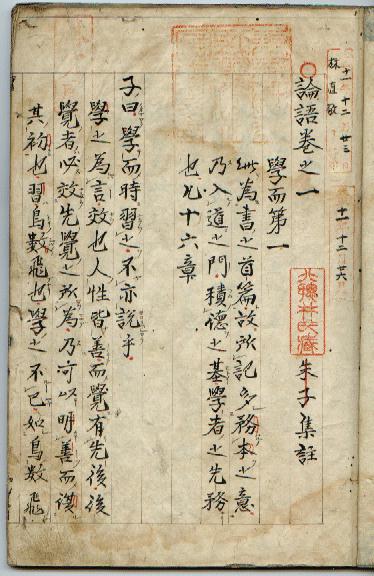 十一 十二 廿三
林道敬
十一 十二 廿六
論語卷之一
朱子集註
學而第一
此為書之首篇故所記多務本之意
乃入道之門積德之基學者之先務
也凡十六章
子曰學而時習之不亦說乎
學之為言效也人性皆善而覺有先後後
覺者必效先覺之所為乃可以明善而復
其初也習鳥數飛也學之不已如鳥數飛